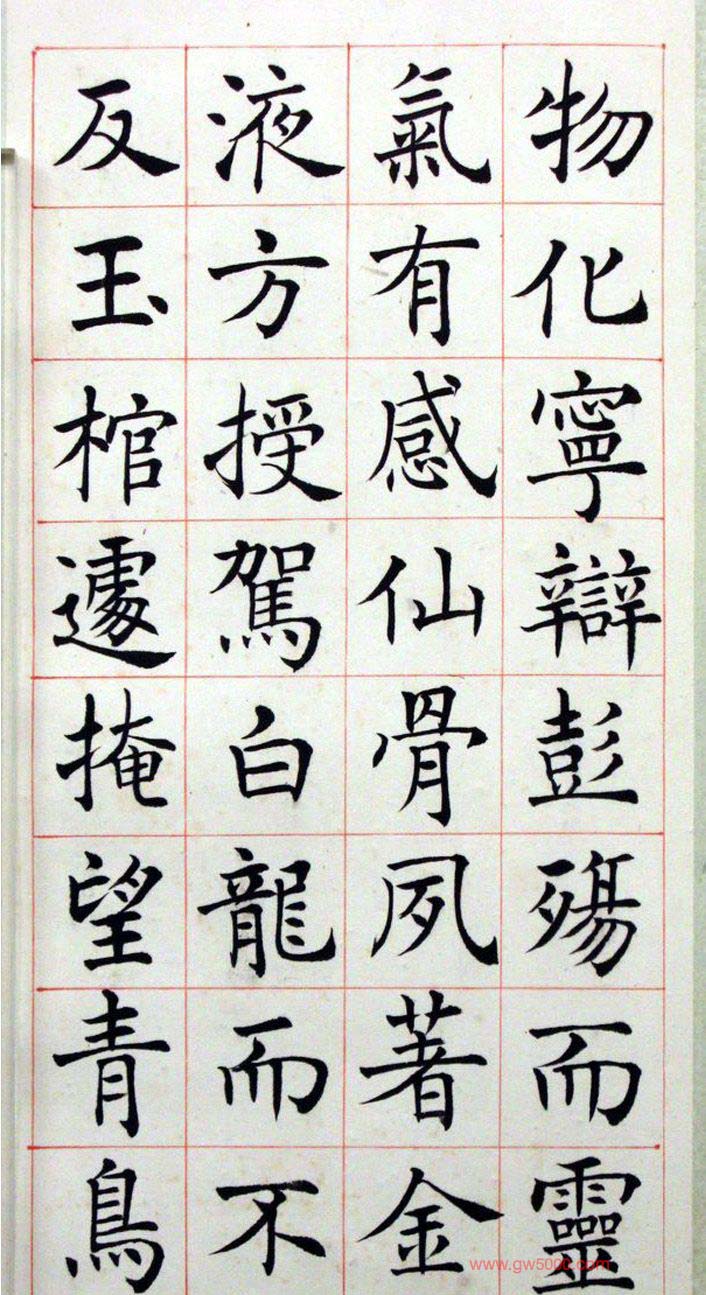 物化寧辯彭殤而靈
氣有感仙骨夙著金
液方授駕白龍而不
反玉棺遽掩望青鳥
www.gw5000.com